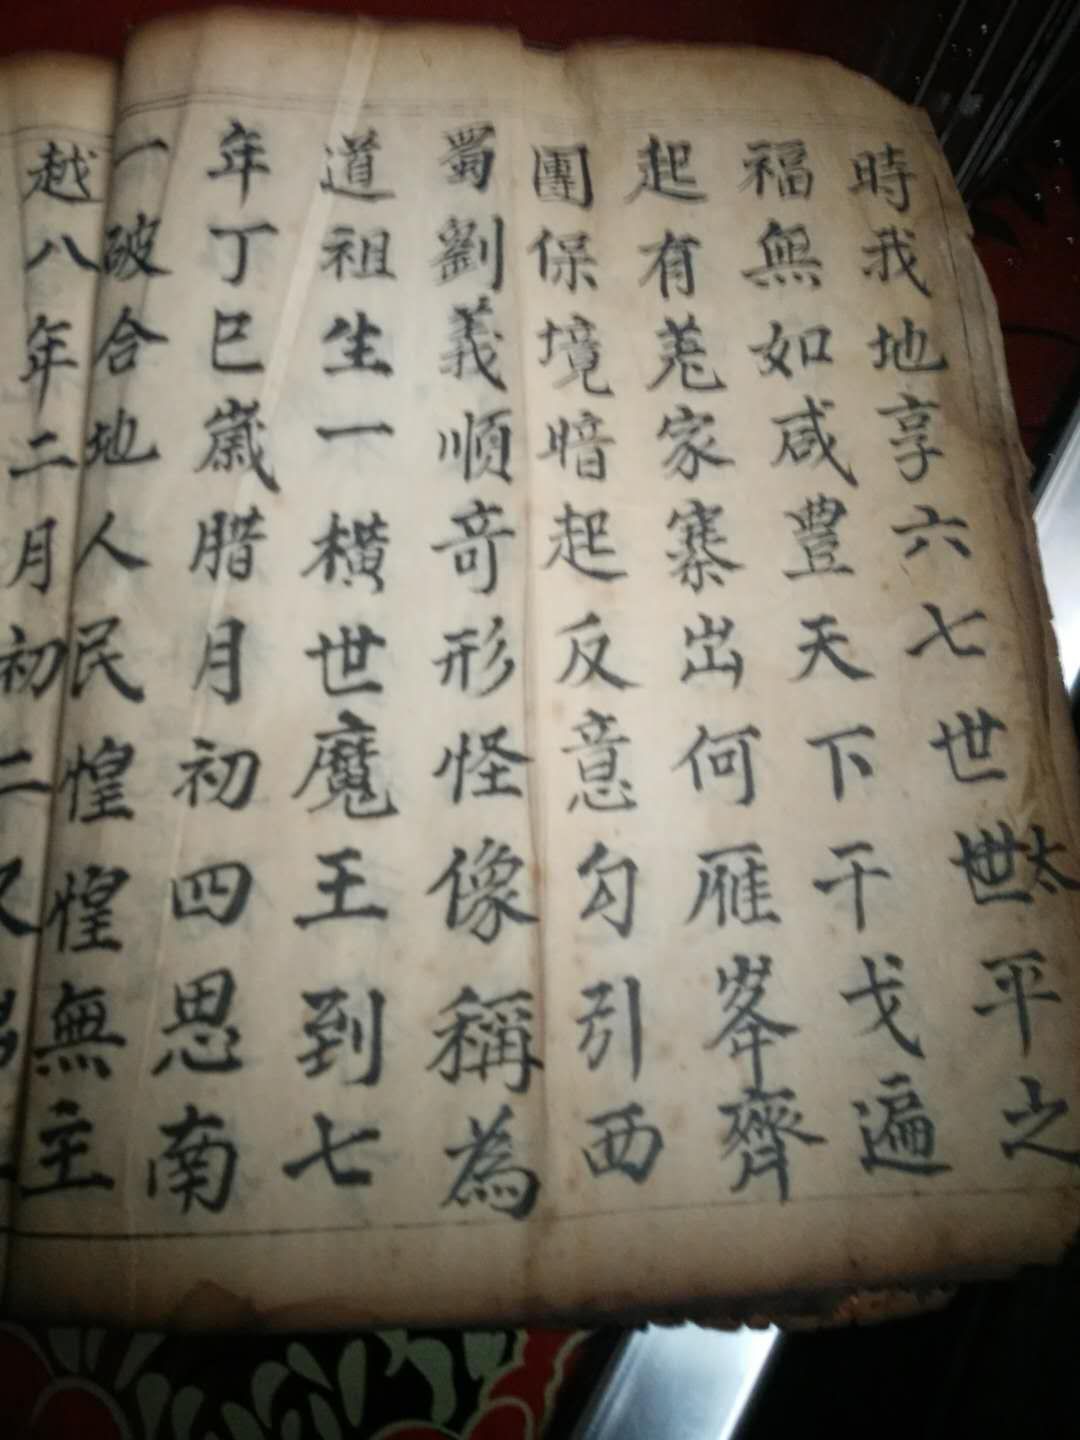 時我地享六七世世太平之
福無如咸豊天下干戈遍
起有羗家寨出何雁峯齊
團保境暗起反意勾引西
蜀劉義順奇形怪像稱為
道祖生一橫世魔王到七
年丁巳歲腊月初四思南
一破合地人民惶惶無主
越八年二月初二